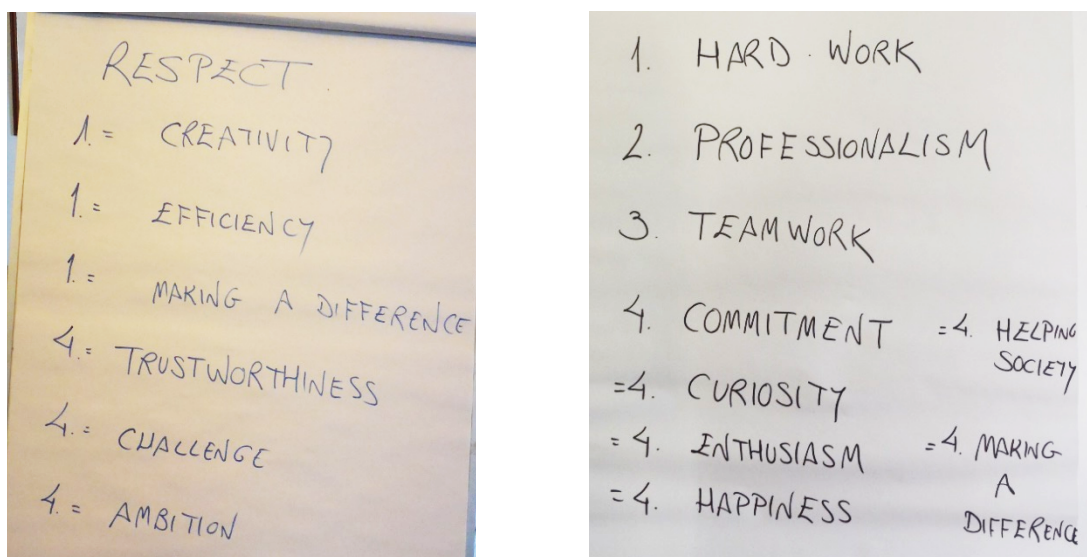 RESPECT.
1.= CREATIVITY
1.= EFFICIENCY
1.= MAKING A DIFFERENCE
4.= TRUSTWORTHINESS
4.= CHALLENGE
4.= AMBITION
1. HARD WORK
2. PROFESSIONALISM
3. TEAMWORK
4. COMMITMENT
=4. CURIOSITY
=4. ENTHUSIASM
=4. HAPPINESS
=4. HELPING
SOCIETY
=4. MAKING
A
DIFFERENCE